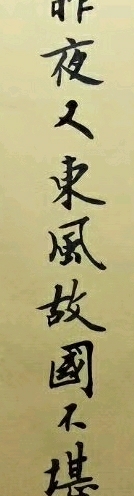 昨夜又東風故國不堪